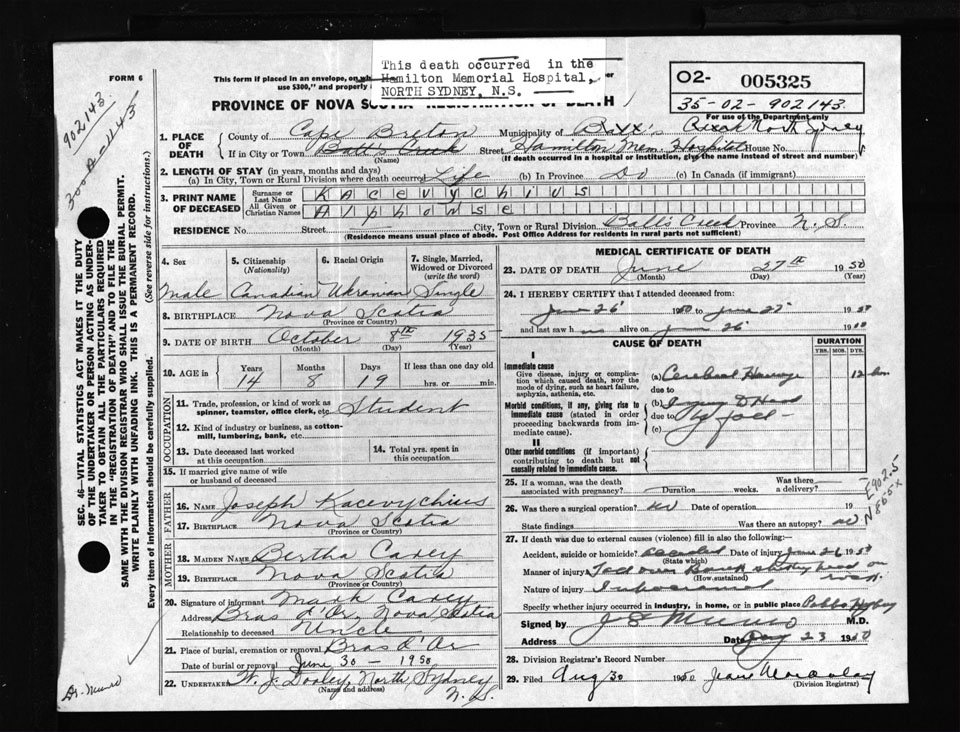 This death occurred in the
Hamilton Memorial Hospital,
NORTH SYDNEY, N.S.
FORM 6
This form if placed in an envelope, on
use $300," and properly
O2- 005325
35-02-902143
For use of the Department only
PROVINCE OF NOVA SCOTIA REGISTRATION OF DEATH
1. PLACE OF DEATH
County of Cape Breton Municipality of
If in City or Town Ball's Creek Street Hamilton Mem. Hospital House No.
(Name) (If death occurred in a hospital or institution, give the name instead of street and number)
2. LENGTH OF STAY (in years, months and days)
(a) In City, Town or Rural Division where death occurred Life (b) In Province Do (c) In Canada (if immigrant)
3. PRINT NAME OF DECEASED
Surname or Last Name Kacevychius
All Given or Christian Names Alphonse
RESIDENCE No. Street City, Town or Rural Division Ball's Creek Province N.S.
(Residence means usual place of abode. Post Office Address for residents in rural parts not sufficient)
4. Sex Male
5. Citizenship (Nationality) Canadian
6. Racial Origin Ukranian
7. Single, Married, Widowed or Divorced (write the word) Single
8. BIRTHPLACE Nova Scotia
(Province or Country)
9. DATE OF BIRTH October 8th 1935
(Month) (Day) (Year)
10. AGE in Years 14 Months 8 Days 19 If less than one day old hrs. or min.
OCCUPATION
11. Trade, profession, or kind of work as spinner, teamster, office clerk, etc. Student
12. Kind of industry or business, as cotton-mill, lumbering, bank, etc.
13. Date deceased last worked at this occupation
14. Total yrs. spent in this occupation
15. If married give name of wife or husband of deceased
FATHER
16. Name Joseph Kacevychius
17. Birthplace Nova Scotia
(Province or Country)
MOTHER
18. Maiden Name Bertha Carey
19. Birthplace Nova Scotia
(Province or Country)
20. Signature of informant Mark Carey
Address Bras d'Or, Nova Scotia
Relationship to deceased Uncle
21. Place of burial, cremation or removal Bras d'Or
Date of burial or removal June 30 - 1950
22. Undertaker W. J. Dooley, North Sydney
(Name and address) N.S.
MEDICAL CERTIFICATE OF DEATH
23. DATE OF DEATH June 27th 1950
(Month) (Day) (Year)
24. I HEREBY CERTIFY that I attended deceased from:
June 26 1950 to June 27 1950
and last saw h alive on June 26 19
CAUSE OF DEATH
DURATION
YRS. MOS. DYS.
I
Immediate cause
Give disease, injury or complication which caused death, NOT the mode of dying, such as heart failure, asphyxia, asthenia, etc.
(a) Cerebral
due to
Morbid conditions, if any, giving rise to immediate cause (stated in order proceeding backwards from immediate cause).
(b) Injury
due to
(c)
II
Other morbid conditions (if important) contributing to death but not causally related to immediate cause.
25. If a woman, was the death associated with pregnancy? Duration weeks. Was there a delivery?
26. Was there a surgical operation? No Date of operation 19
State findings Was there an autopsy? no
27. If death was due to external causes (violence) fill in also the following:
Accident, suicide or homicide? Accident Date of injury June 26 1950
(State which)
Manner of injury head on
(How sustained)
Nature of injury
Specify whether injury occurred in industry, in home, or in public place
Signed by J S Munro M.D.
Address Date 23 19
28. Division Registrar's Record Number
29. Filed Aug 30 19
(Division Registrar)
E902.5
SEC. 46—VITAL STATISTICS ACT MAKES IT THE DUTY
OF THE UNDERTAKER OR PERSON ACTING AS UNDER-
TAKER TO OBTAIN ALL THE PARTICULARS REQUIRED
IN THE "REGISTRATION OF DEATH" AND TO FILE THE
SAME WITH THE DIVISION REGISTRAR WHO SHALL ISSUE THE BURIAL PERMIT.
WRITE PLAINLY WITH UNFADING INK. THIS IS A PERMANENT RECORD.
Every item of information should be carefully supplied. (See reverse side for instructions.)
902143
Dr. Munro